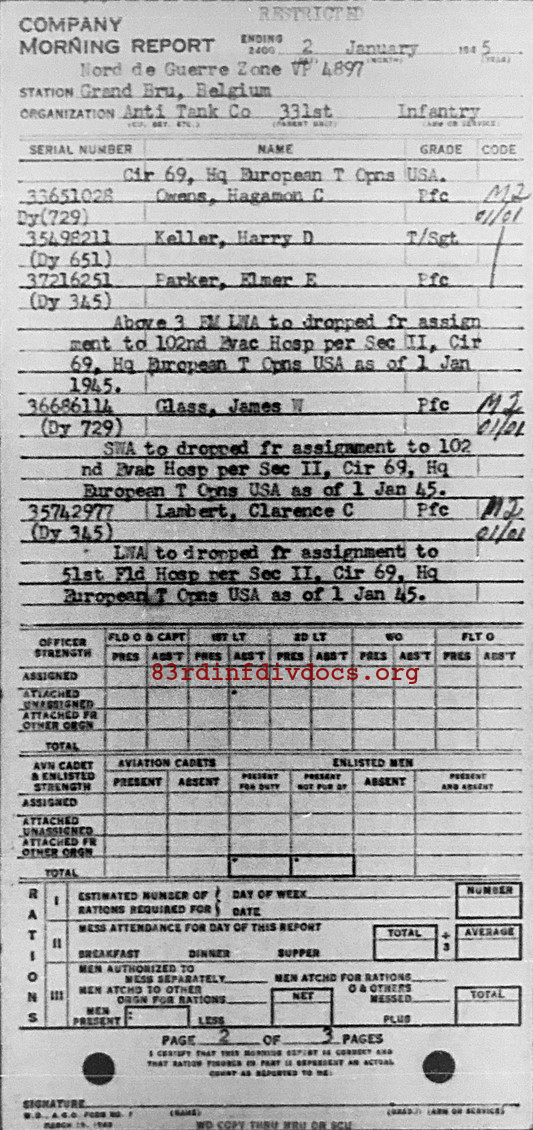 RESTRICTED
COMPANY
MORNING REPORT ENDING 2400 2 January 1945
(DAY) (MONTH) (YEAR)
Nord de Guerre Zone VP 4897
STATION Grand Bru, Belgium
ORGANIZATION Anti Tank Co 331st Infantry
(CO, DET, ETC.) (PARENT UNIT) (ARM OR SERVICE)
SERIAL NUMBER NAME GRADE CODE
Cir 69, Hq European T Opns USA.
33651028 Owens, Hagamon C Pfc M2
Dy(729) 01/01
35498211 Keller, Harry D T/Sgt
(Dy 651)
37216251 Parker, Elmer E Pfc
(Dy 345)
Above 3 EM LWA to dropped fr assign
ment to 102nd Evac Hosp per Sec II, Cir
69, Hq European T Opns USA as of 1 Jan
1945.
36686114 Glass, James W Pfc M2
(Dy 729) 01/01
SWA to dropped fr assignment to 102
nd Evac Hosp per Sec II, Cir 69, Hq
European T Opns USA as of 1 Jan 45.
35742977 Lambert, Clarence C Pfc M2
(Dy 345) 01/01
LWA to dropped fr assignment to
51st Fld Hosp per Sec II, Cir 69, Hq
European T Opns USA as of 1 Jan 45.
OFFICER STRENGTH FLD O & CAPT 1ST LT 2D LT WO FLT O
PRES ABS'T PRES ABS'T PRES ABS'T PRES ABS'T PRES ABS'T
83rdinfdivdocs.org
ASSIGNED
ATTACHED UNASSIGNED
ATTACHED FR OTHER ORGN
TOTAL
AVN CADET & ENLISTED STRENGTH AVIATION CADETS ENLISTED MEN
PRESENT ABSENT PRESENT FOR DUTY PRESENT NOT FOR DY ABSENT PRESENT AND ABSENT
ASSIGNED
ATTACHED UNASSIGNED
ATTACHED FR OTHER ORGN
TOTAL
RATIONS
I ESTIMATED NUMBER OF RATIONS REQUIRED FOR DAY OF WEEK DATE NUMBER
II MESS ATTENDANCE FOR DAY OF THIS REPORT TOTAL ÷ 3 AVERAGE
BREAKFAST DINNER SUPPER
III MEN AUTHORIZED TO MESS SEPARATELY MEN ATCHD FOR RATIONS
MEN ATCHD TO OTHER ORGN FOR RATIONS NET O & OTHERS MESSED TOTAL
MEN PRESENT LESS PLUS
PAGE 2 OF 3 PAGES
I CERTIFY THAT THIS MORNING REPORT IS CORRECT AND
THAT RATION FIGURES IN PART II REPRESENT AN ACTUAL
COUNT AS REPORTED TO ME:
SIGNATURE
W.D., A.G.O. FORM NO. 1 (NAME) (GRADE) (ARM OR SERVICE)
MARCH 19, 1943
WD COPY THRU MRU OR SCU